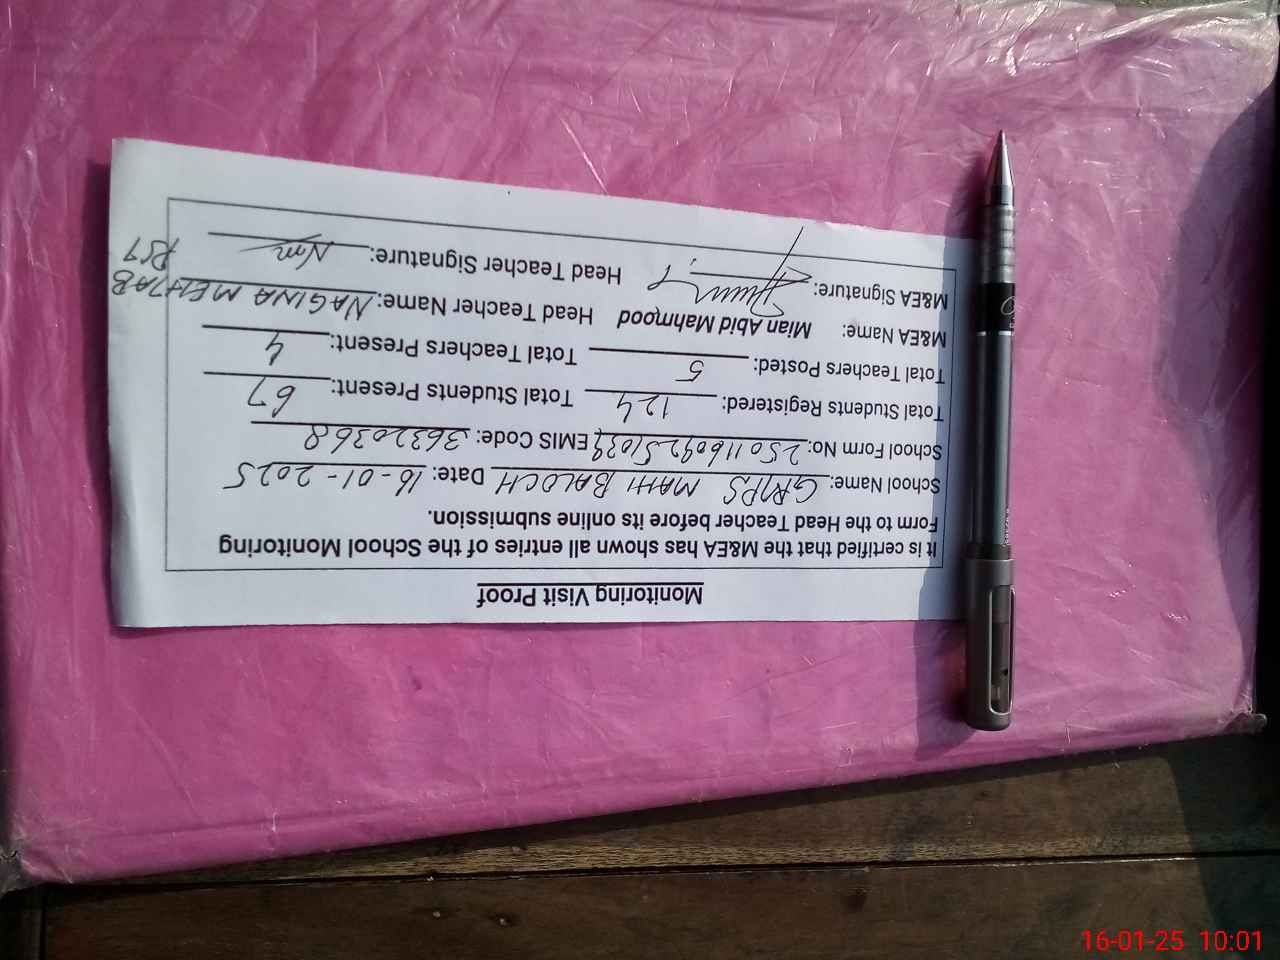 Monitoring Visit Proof
It is certified that the M&EA has shown all entries of the School Monitoring
Form to the Head Teacher before its online submission.
School Name: GMPS MAHI BALOCH Date: 16-01-2025
School Form No: EMIS Code: 36320368
Total Students Registered: 124 Total Students Present: 67
Total Teachers Posted: 5 Total Teachers Present: 4
M&EA Name: Mian Abid Mahmood Head Teacher Name: NAGINA MEHTAB
M&EA Signature: Head Teacher Signature: Nm
PST
16-01-25 10:01